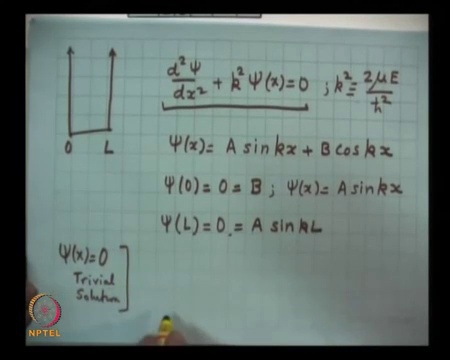 d²Ψ/dx² + k²Ψ(x)=0 ; k² = 2μE/ħ²
O L
Ψ(x)= A sin kx + B cos kx
Ψ(0)=0=B ; Ψ(x)= A sin kx
Ψ(L)=0 = A sin kL
Ψ(x)=0
Trivial
Solution
NPTEL